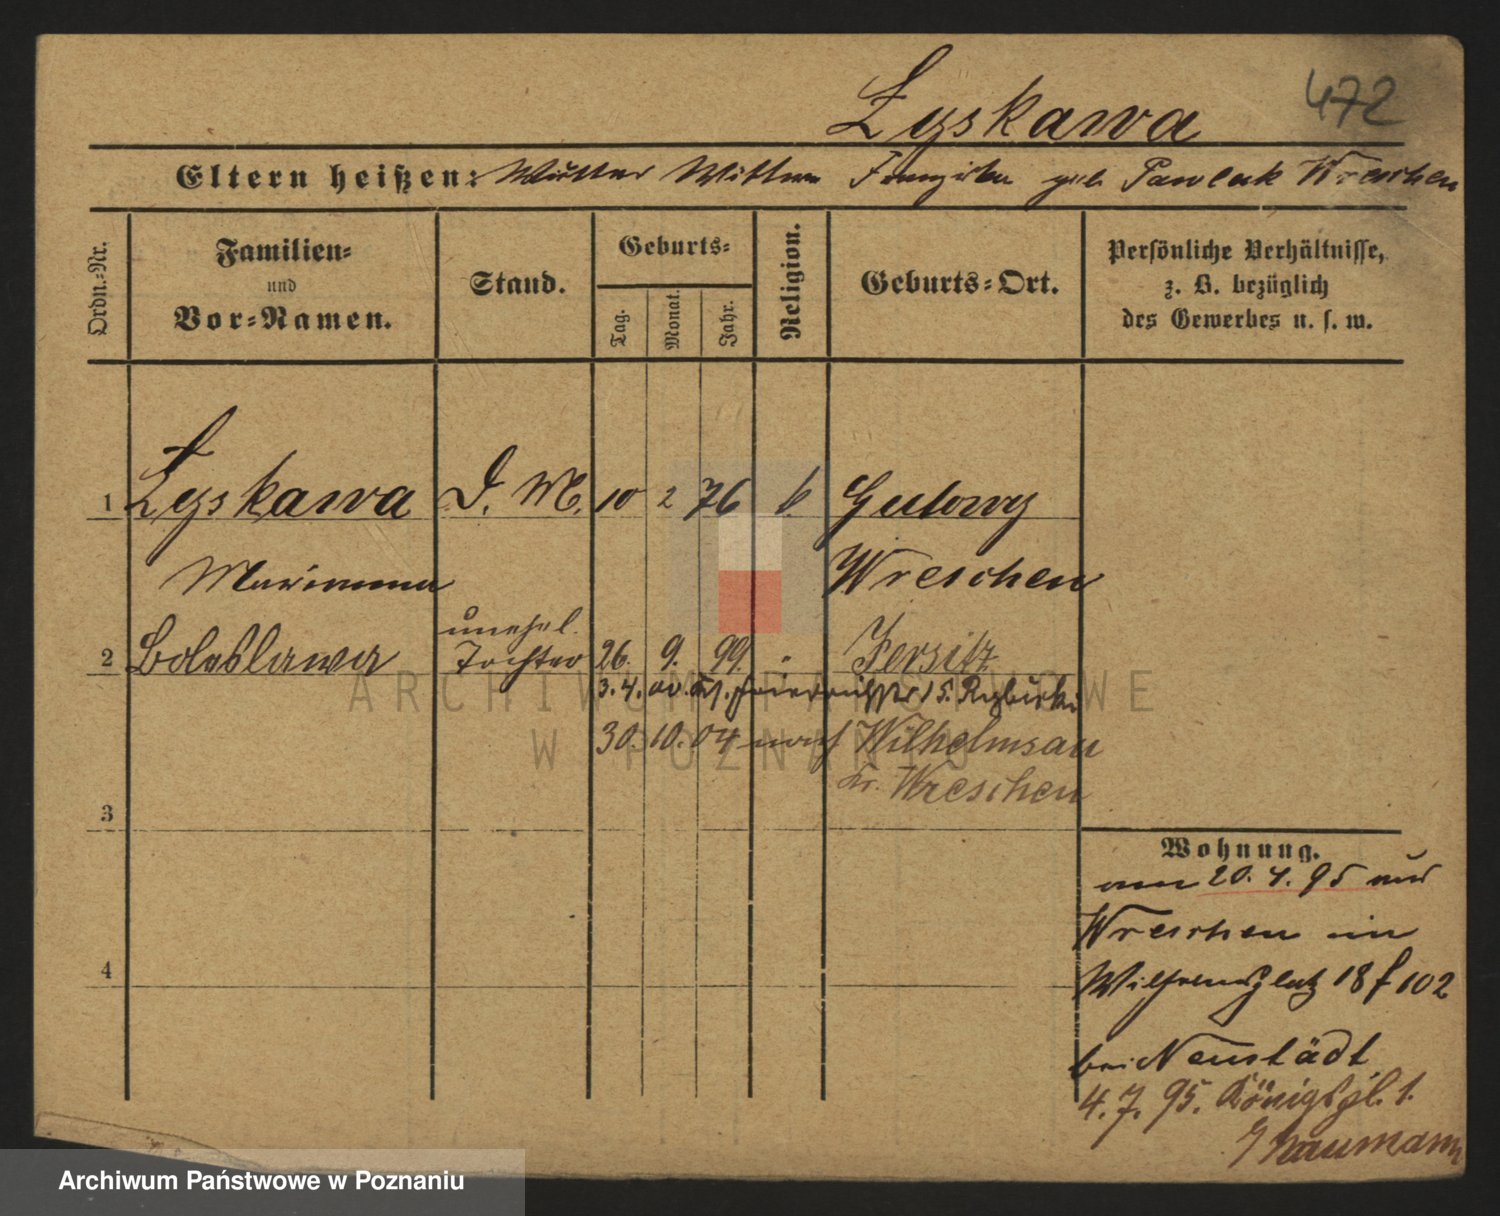 472
Lyskawa
Eltern heißen: Mutter Wittwe Franziska geb. Pawlak Wreschen
Ordn.-Nr.
Familien- und Vor-Namen.
Stand.
Geburts-
Tag.
Monat.
Jahr.
Religion.
Geburts-Ort.
Persönliche Verhältnisse,
z. B. bezüglich
des Gewerbes u. s. w.
1 Lyskawa D. M. 10 2 76 k Gutowy
Marianna Wreschen
unehel.
2 Boleslawa Tochter 26. 9. 99. Jersitz
3. 4. 00. 15.
30. 10. 04 nach Wilhelmsau
Kr. Wreschen
3
4
Wohnung.
am 20. 4. 95 aus
Wreschen in
Wilhelmsplatz 18 f 102
bei Neustädt
4. 7. 95. Königspl. 1.
Naumann
ARCHIWUM PAŃSTWOWE
W POZNANIU
Archiwum Państwowe w Poznaniu